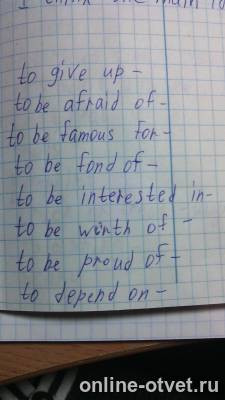 I think the main
to give up -
to be afraid of -
to be famous for -
to be fond of -
to be interested in-
to be worth of -
to be proud of -
to depend on -
online-otvet.ru